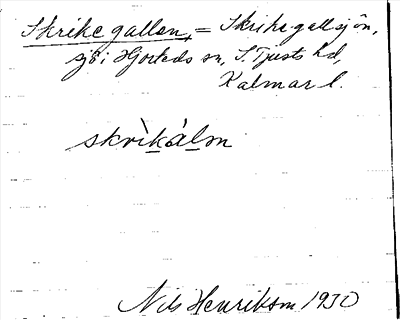 Skrikegallen, = Skrikegallsjön,
sjö i Hjorteds sn, S. Tjusts hd,
Kalmar l.
skrìkálm
Nils Henrikson 1930